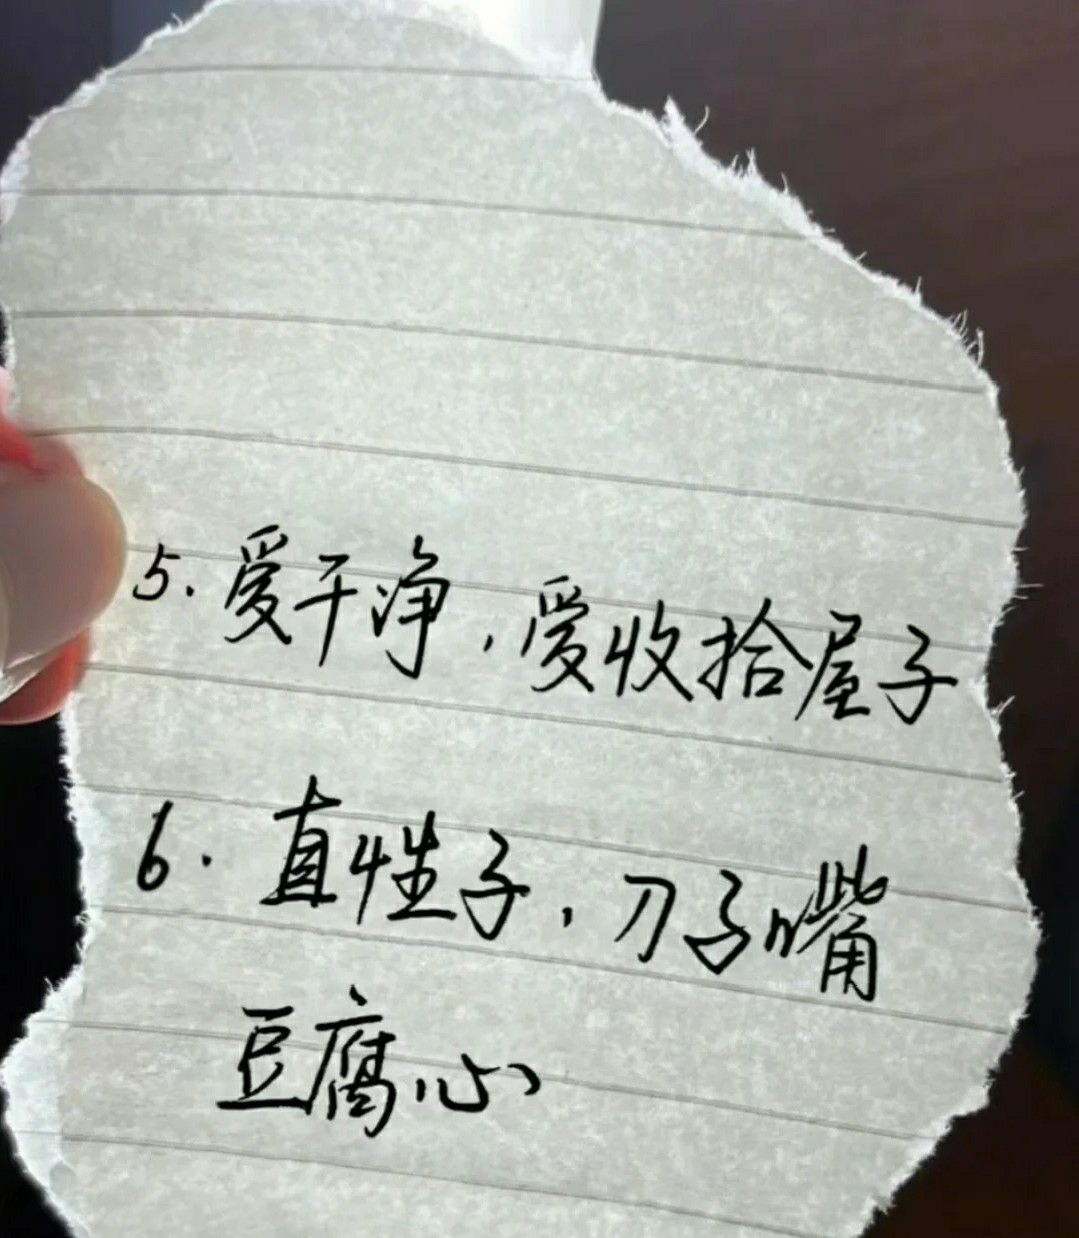 5. 爱干净，爱收拾屋子
6. 直性子，刀子嘴
豆腐心